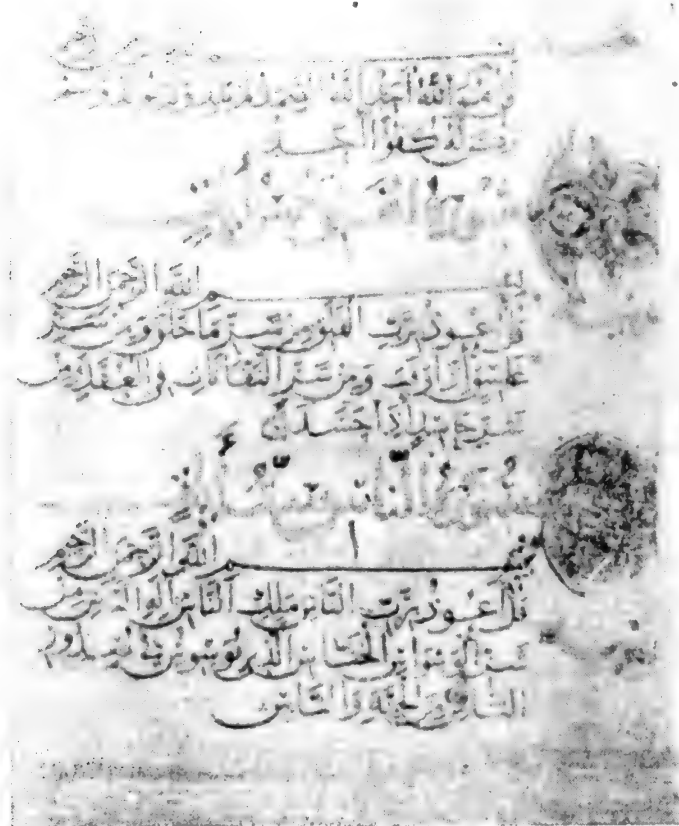 الرحمن الرحيم
قل هو الله أحد الله الصمد لم يلد ولم يولد ولم
يكن له كفوا أحد
سورة الفلق
بسم الله الرحمن الرحيم
قل أعوذ برب الفلق من شر ما خلق ومن شر
غاسق إذا وقب ومن شر النفاثات في العقد ومن
شر حاسد إذا حسد
سورة الناس
بسم الله الرحمن الرحيم
قل أعوذ برب الناس ملك الناس إله الناس من
شر الوسواس الخناس الذي يوسوس في صدور
الناس من الجنة والناس